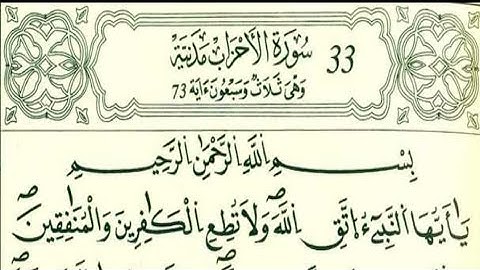 33 سُورَةُ الْأَحْزَابِ مَدَنِيَّة
وَهِيَ ثَلَاثٌ وَسَبْعُونَ ءَايَة 73
بِسْمِ اِ۬للَّهِ اِ۬لرَّحْمَٰنِ اِ۬لرَّحِيمِ
يَٰأَيُّهَا اَ۬لنَّبِيٓءُ اتَّقِ اِ۬للَّهَ وَلَا تُطِعِ اِ۬لْكَٰفِرِينَ وَالْمُنَٰفِقِينَ